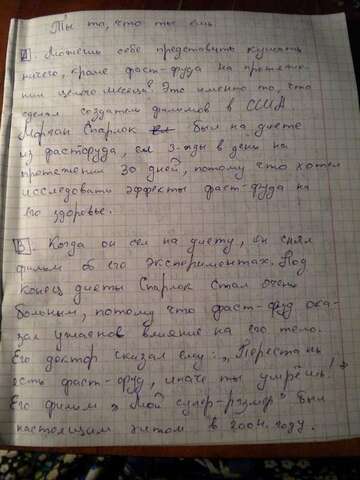 Ты то, что ты ешь
А. Можешь себе представить кушать
ничего, кроме фаст-фуда на протяже-
нии целого месяца? Это именно то, что
сделал создатель фильмов в США
Морган Спарлок был на диете
из фастфуда, ел 3-жды в день на
протяжении 30 дней, потому что хотел
исследовать эффекты фаст-фуда на
его здоровье.
В. Когда он сел на диету, он снял
фильм об его экспериментах. Под
конец диеты Спарлок стал очень
больным, потому что фаст-фуд ока-
зал ужасное влияние на его тело.
Его доктор сказал ему: „Перестань
есть фаст-фуд, иначе ты умрёшь!"
Его фильм „Мой супер-размер" был
настоящим хитом в 2004. году.